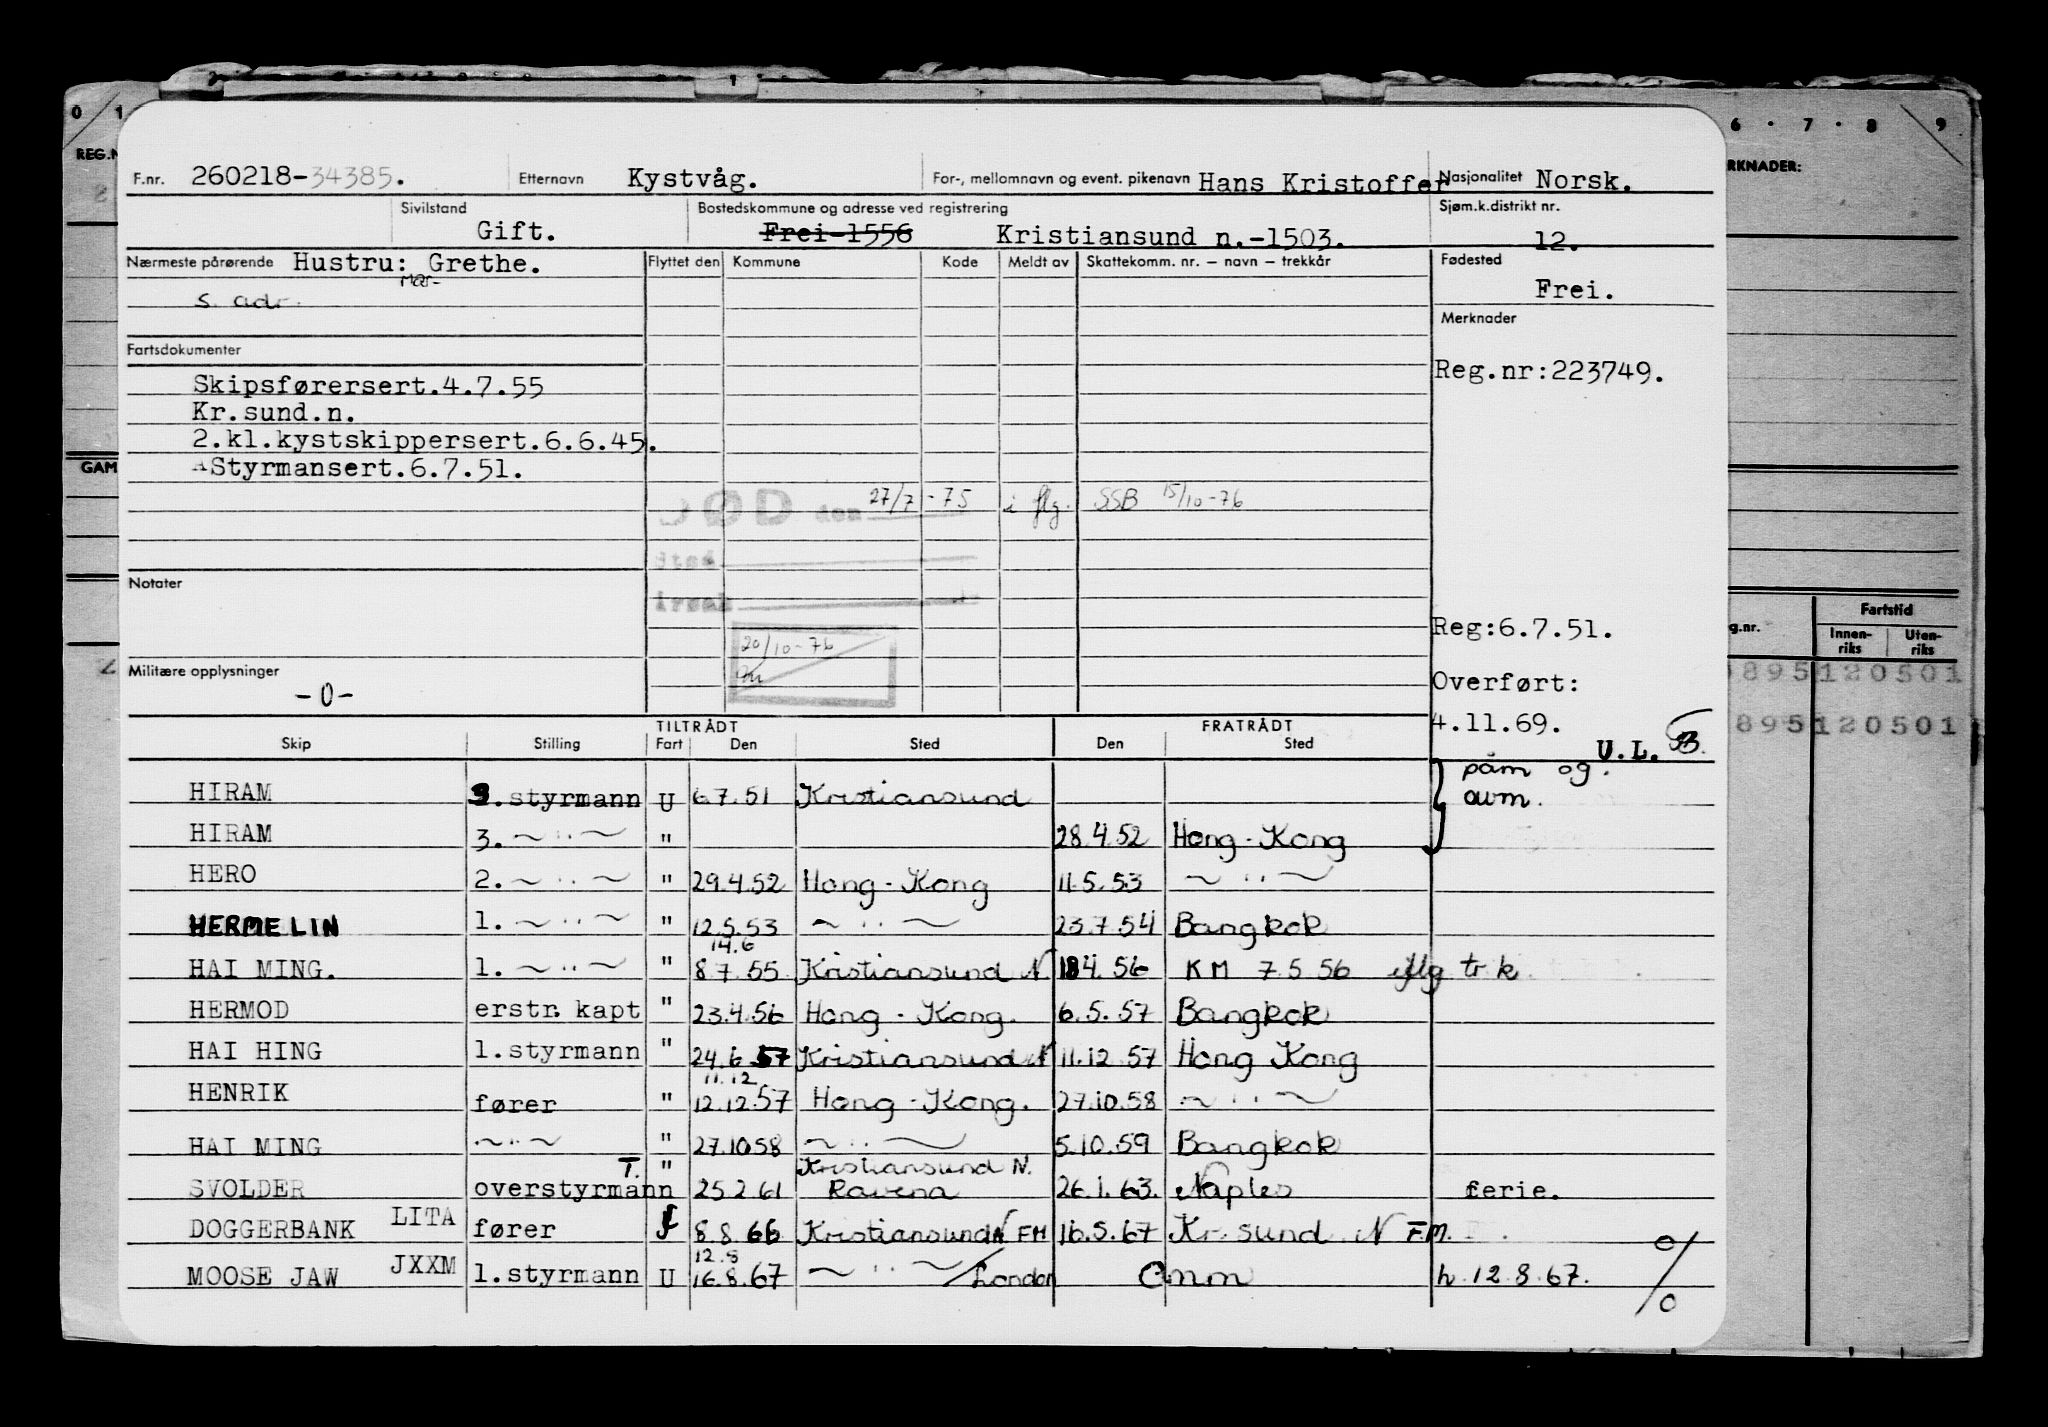 0 1 2 1 6 · 7 · 8 9
REG.N RKNADER:
F.nr. 260218-34385. Etternavn Kystvåg. For-, mellomnavn og event. pikenavn Hans Kristoffer Nasjonalitet Norsk.
Sivilstand Gift. Bostedskommune og adresse ved registrering ~~Frei-1556~~ Kristiansund n.-1503. Sjøm.k.distrikt nr. 12.
Nærmeste pårørende Hustru: Grethe. Flyttet den Kommune Kode Meldt av Skattekomm. nr. – navn – trekkår Fødested
Mar-
s. adr. Frei.
Merknader
Fartsdokumenter
Reg.nr:223749.
Skipsførersert.4.7.55
Kr.sund.n.
2.kl.kystskippersert.6.6.45.
GAM
Styrmansert.6.7.51.
DØD den 27/7-75 i flg. SSB 15/10-76
sted
årsak
Notater
Reg:6.7.51.
g.nr. Fartstid
Innen-riks Uten-riks
20/10-76
Militære opplysninger
-0-
Overført:
4.11.69.
895120501
895120501
U.L. B.
TILTRÅDT FRATRÅDT
Skip Stilling Fart Den Sted Den Sted
HIRAM 3.styrmann U 6.7.51 Kristiansund } påm og
avm.
HIRAM 3. ~ " ~ " 28.4.52 Hong-Kong
HERO 2. ~ " ~ " 29.4.52 Hong-Kong 11.5.53 ~ " ~
HERMELIN 1. ~ " ~ " 12.5.53 ~ " ~ 23.7.54 Bangkok
14.6
HAI MING. 1. ~ " ~ " 8.7.55 Kristiansund N 18.4.56 KM 7 5 56 iflg tr k
HERMOD erstr. kapt " 23.4.56 Hong-Kong. 6.5.57 Bangkok
HAI HING 1.styrmann " 24.6.57 Kristiansund N 11.12.57 Hong Kong
11.12
HENRIK fører " 12.12.57 Hong-Kong. 27.10.58 ~ " ~
HAI MING ~ " ~ " 27.10.58 ~ " ~ 5.10.59 Bangkok
T. " Kristiansund N.
SVOLDER overstyrmann 25.2.61 Ravena 26.1.63. Naples ferie.
DOGGERBANK LITA fører 8.8.66 Kristiansund N FM 16.5.67 Kr.sund N FM.
12.8
MOOSE JAW JXXM 1.styrmann U 16.8.67 ~ " ~ / London Omm h.12.8.67. %